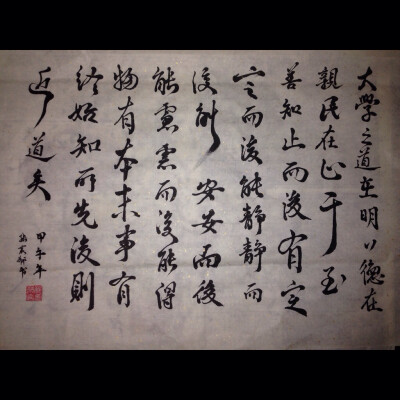 大學之道在明々德在
親民在止于至
善知止而後有定
定而後能靜靜而
後能安安而後
能慮慮而後能得
物有本末事有
終始知所先後則
近道矣
甲午年
書